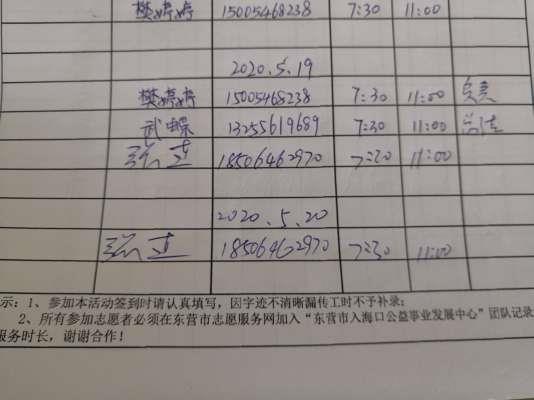 樊婷婷 15005468238 7:30 11:00
2020.5.19
樊婷婷 15005468238 7:30 11:00 负责
武蝶 13255619689 7:30 11:00
18506462970 7:30 11:00
2020.5.20
18506462970 7:30 11:00
示：1、参加本活动签到时请认真填写，因字迹不清晰漏传工时不予补录；
2、所有参加志愿者必须在东营市志愿服务网加入“东营市入海口公益事业发展中心”团队记录
服务时长，谢谢合作！